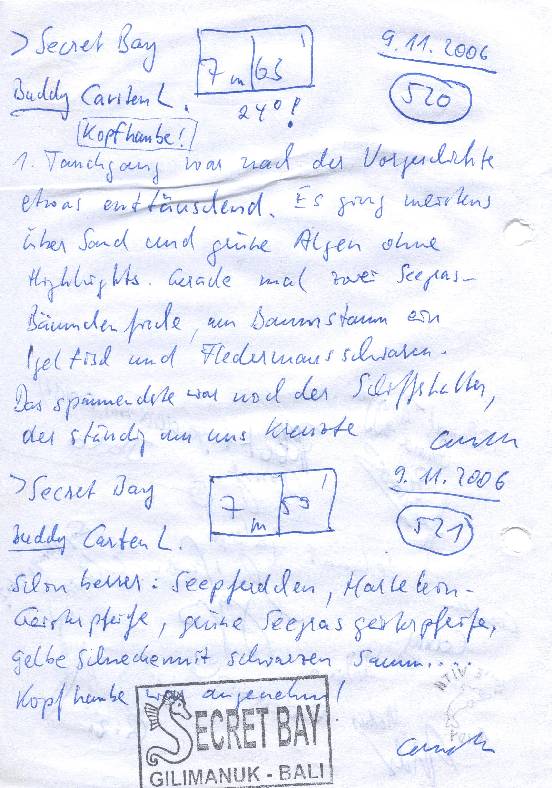 > Secret Bay
7 m 63'
9.11.2006
Buddy Carsten L.
24°!
520
Kopfhaube!
1. Tauchgang war nach der Vorgeschichte
etwas enttäuschend. Es ging meistens
über Sand und grüne Algen ohne
Highlights. Gerade mal zwei Seegras-
, am Baumstamm ein
Igelfisch und Fledermausschwarm.
Das spannendste war noch der Schiffshalter,
der ständig um uns kreuzte
> Secret Bay
7 m 59'
9.11.2006
Buddy Carsten L.
521
Schon besser: Seepferdchen, Harlekin-
Geisterpfeife, grüne Seegrasgeisterpfeife,
gelbe Schnecke mit schwarzem Saum.....
Kopfhaube war angenehm!
SECRET BAY
GILIMANUK - BALI